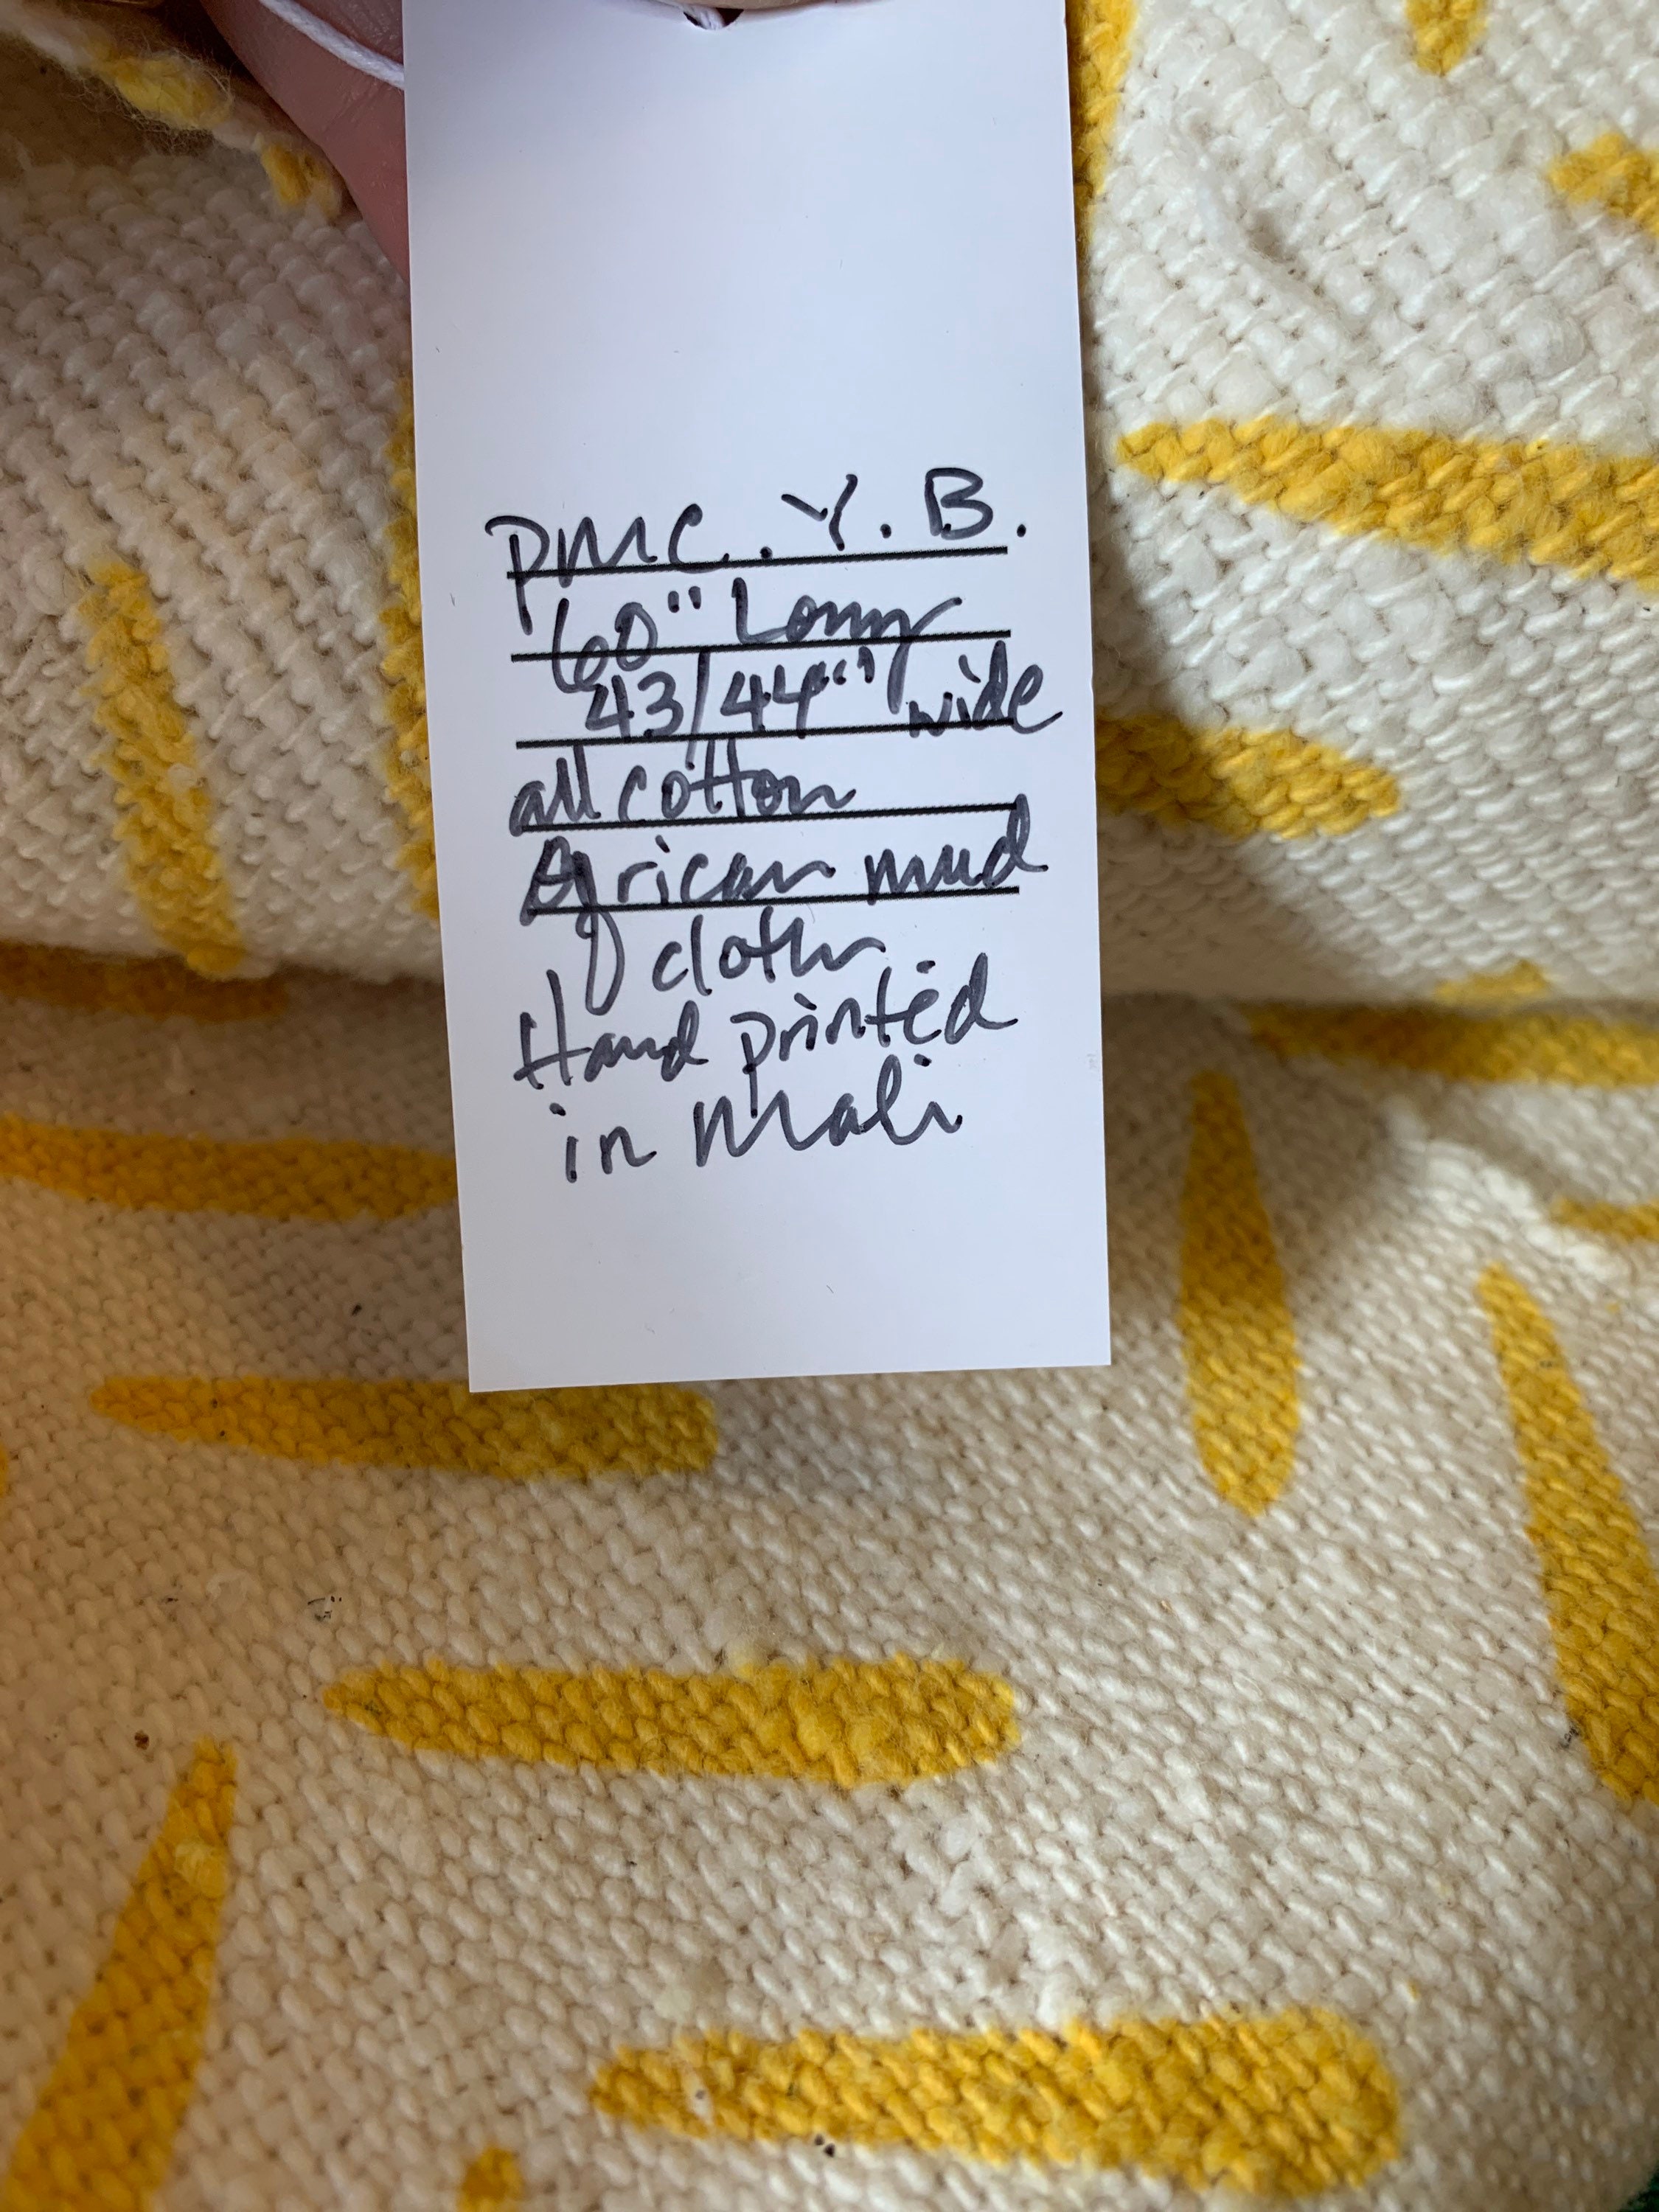 PMC. Y. B.
60" Long
43/44"" wide
all cotton
African mud
cloth
Hand printed
in Mali